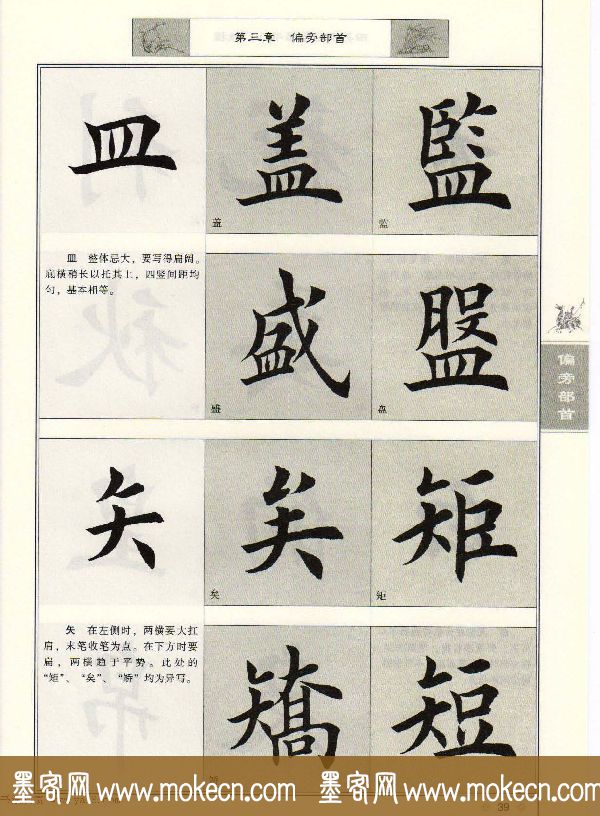 第三章 偏旁部首
皿
盖
盖
監
监
皿 整体忌大，要写得扁阔。
底横稍长以托其上，四竖间距均
匀，基本相等。
盛
盛
盤
盘
偏旁部首
矢
矣
矣
矩
矩
矢 在左侧时，两横要大扛
肩，末笔收笔为点。在下方时要
扁，两横趋于平势。此处的
“矩”、“矣”、“矫”均为异写。
矯
短
墨客网 www.mokecn.com 墨客网 www.mokecn.com
39